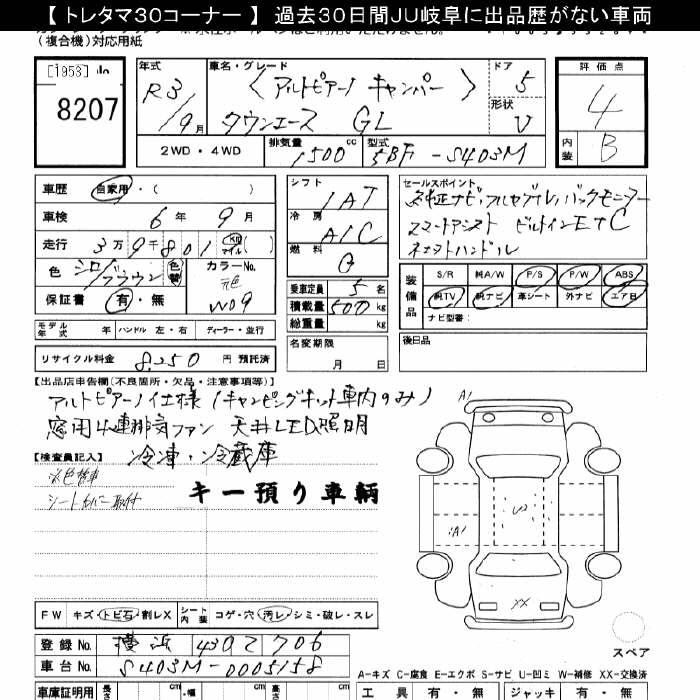 【 トレタマ30コーナー 】 過去30日間JU岐阜に出品歴がない車両
(複合機)対応用紙
[1958]
8207
年式 R3/9月
車名・グレード 〈 アルトピアーノ キャンパー 〉
タウンエース GL
ドア 5
形状 V
評価点 4
内装 B
2WD・4WD
排気量 1500 cc
型式 5BF-S403M
車歴 自家用・( )
車検 6年 9月
走行 3万9千801 km マイル ( )
色 シロ/ブラウン 色替
カラーNo. 元色 W09
保証書 有・無
シフト 1AT
冷房 A/C
燃料 G
乗車定員 5名
積載量 500 kg
総重量 kg
名変期限 月 日
セールスポイント
純正ナビ・フルセグTV、バックモニター
スマートアシスト ビルトインETC
ネオストハンドル
装備品 S/R 純A/W P/S P/W ABS
純TV 純ナビ 革シート 外ナビ エアB
ナビ型番:
後日品
モデル年式 年 ハンドル 左・右 ディーラー・並行
リサイクル料金 8,250 円 預託済
【出品店申告欄(不良箇所・欠品・注意事項等)】
アルトピアーノ仕様(キャンピングキット車内のみ)
窓用4連排気ファン 天井LED照明
冷凍・冷蔵庫
【検査員記入】
元色替車
シートカバー取付
キー預り車輌
A1
A1
U2
XX
スペア
FW キズ・トビ石・割レX シート内装 コゲ・穴・汚レ・シミ・破レ・スレ
登録No. 横浜 430 て 706
車台No. S403M-0005158
A-キズ C-腐食 E-エクボ S-サビ U-凹ミ W-補修 XX-交換済
車庫証明用 長さ cm ・幅 cm cm
工具 有・無 ジャッキ 有・無